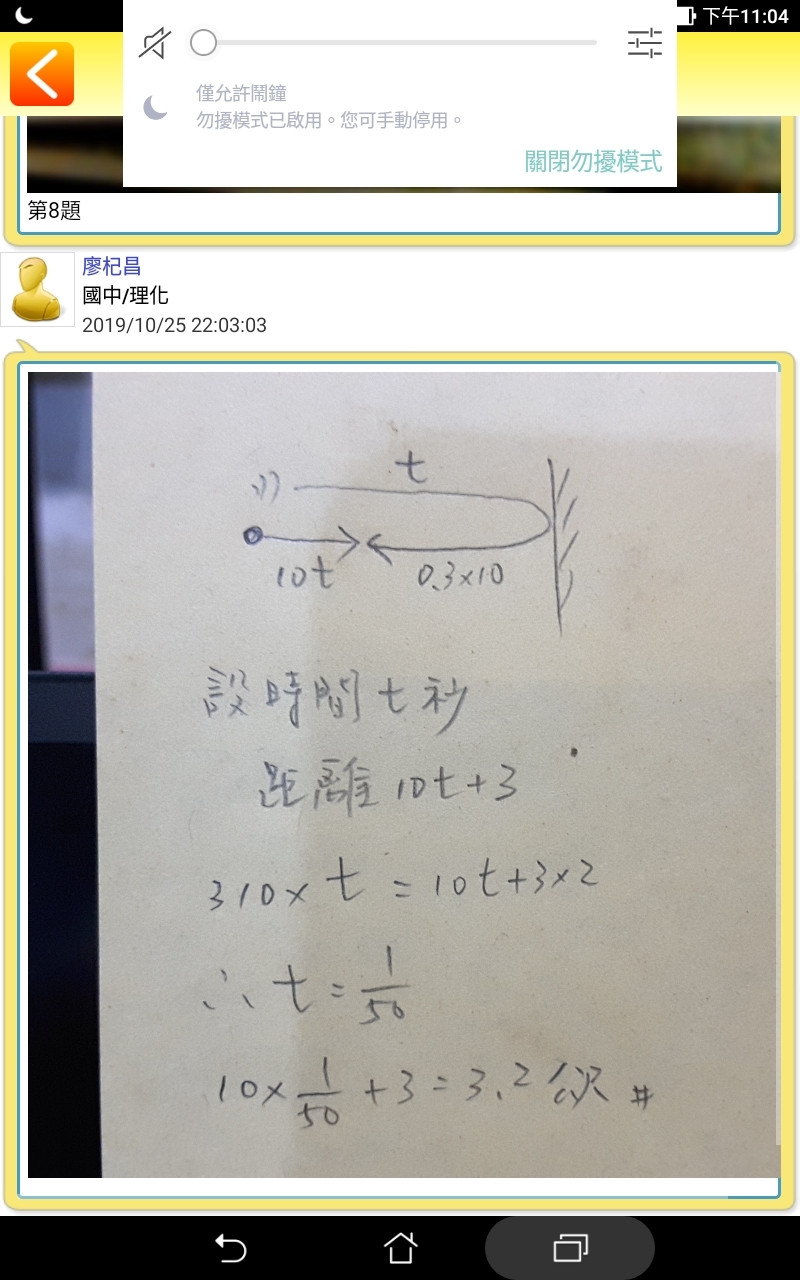 下午11:04
僅允許鬧鐘
勿擾模式已啟用。您可手動停用。
關閉勿擾模式
第8題
廖杞昌
國中/理化
2019/10/25 22:03:03
t
10t
0.3×10
設時間t秒
距離10t+3
310×t=10t+3×2
∴t=1/50
10×1/50+3=3.2公尺#